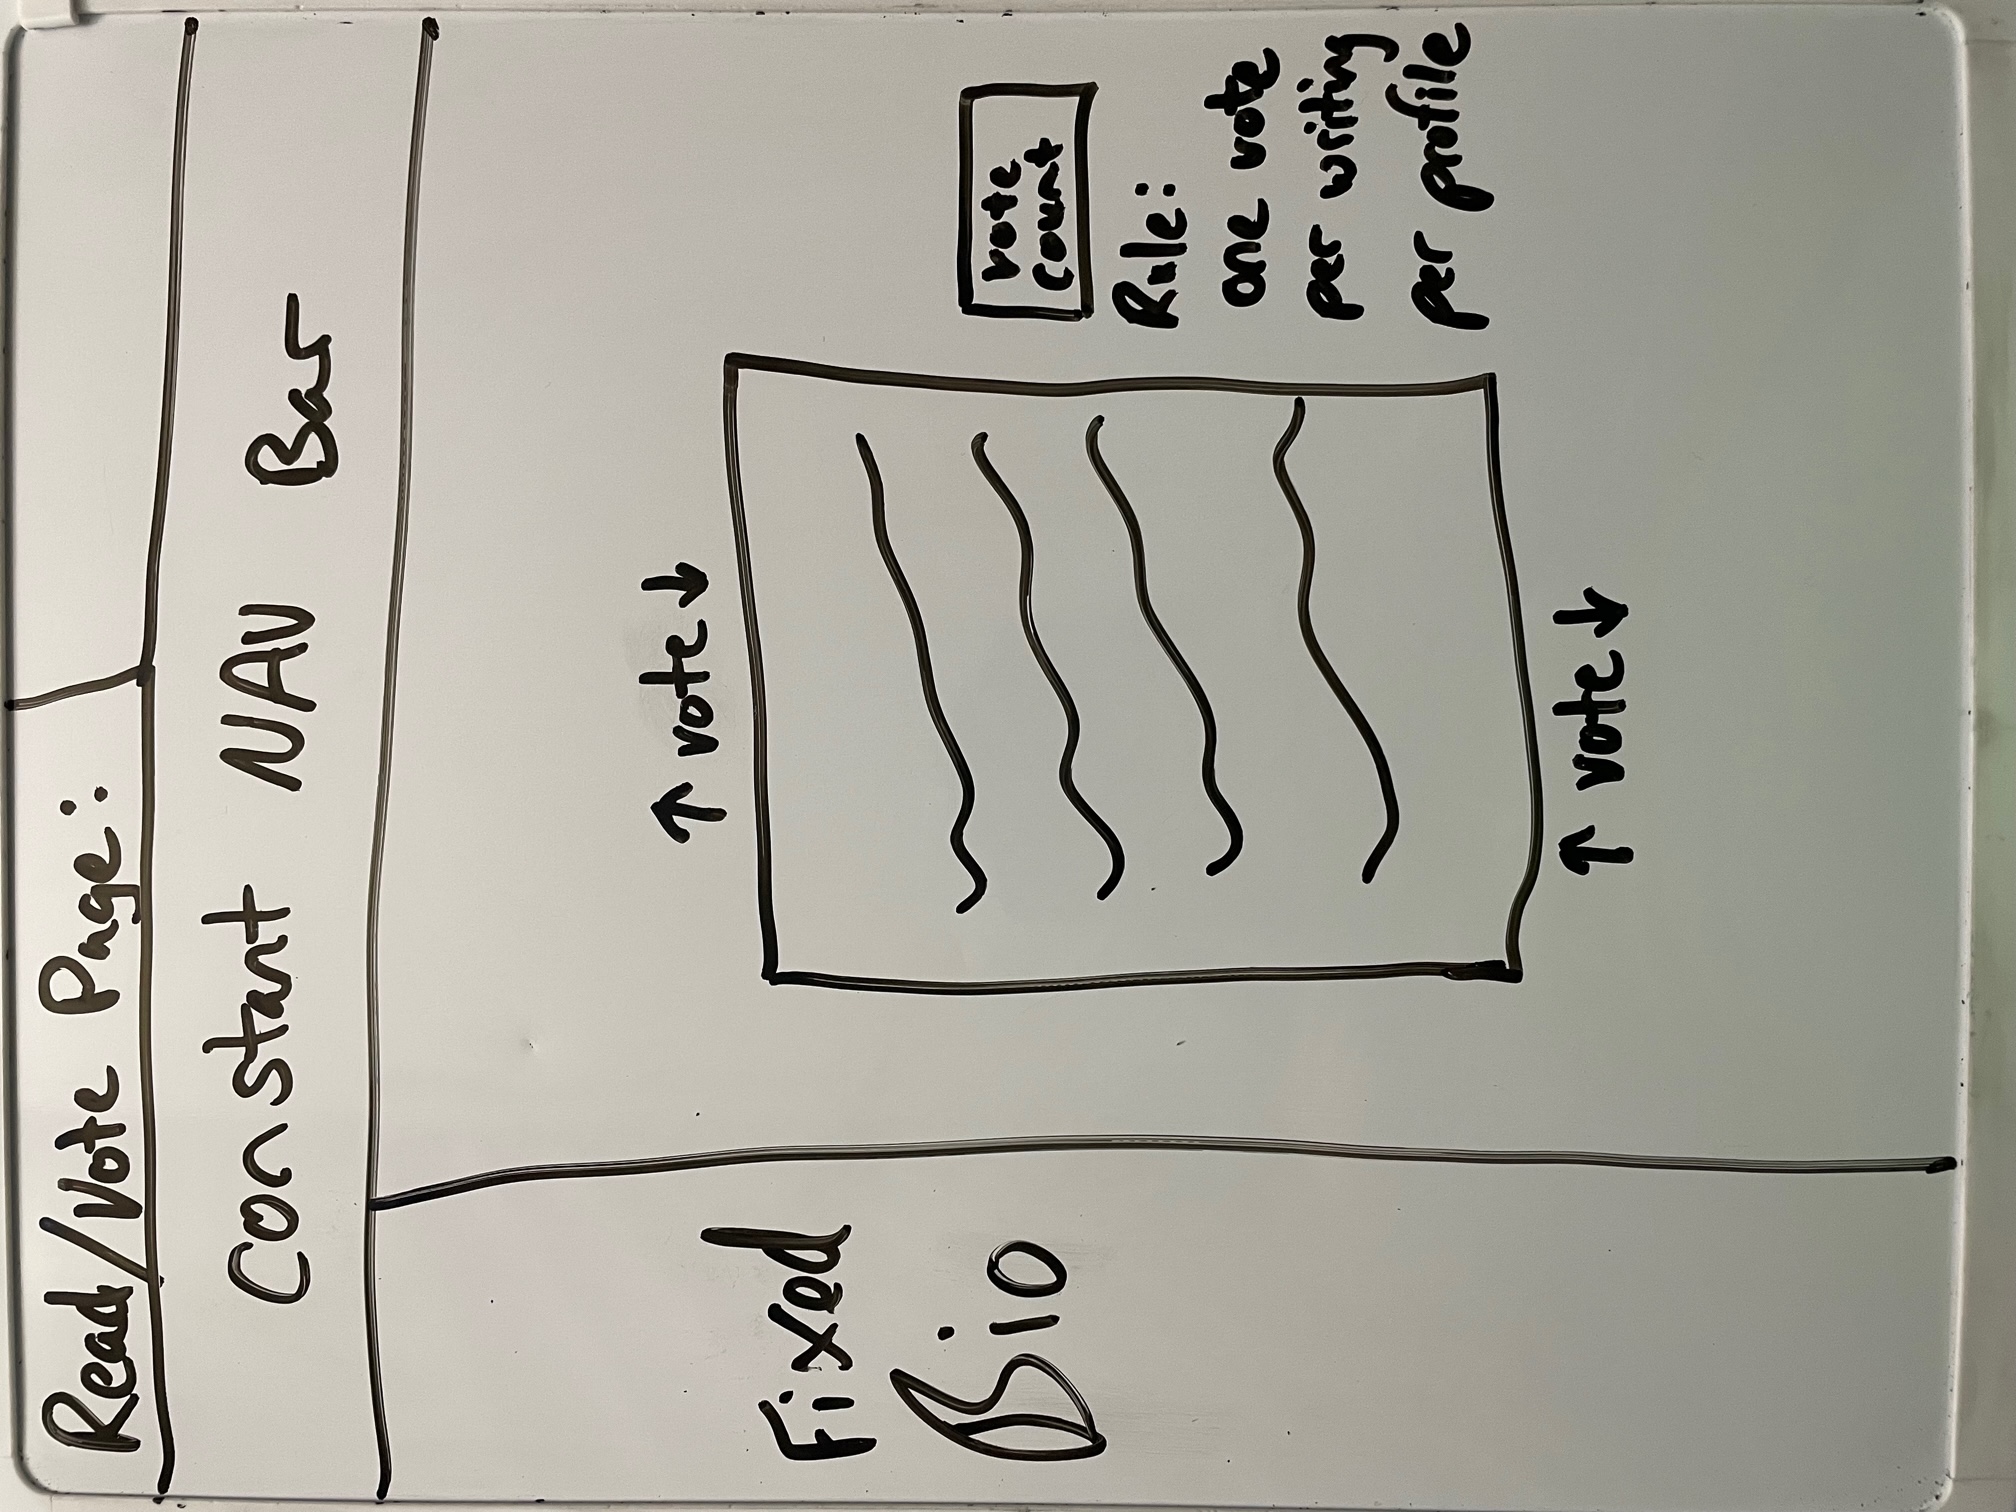 Read/Vote Page:
Constant NAV Bar
Fixed
Bio
↑ vote ↓
vote
count
Rule:
one vote
per writing
per profile
↑ vote ↓